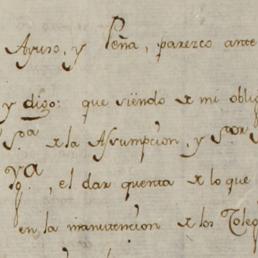 Ayuso, y Peña, parezco ante
y digo: que siendo de mi oblig
S.ra de la Assumpcion, y por
, el dar quenta de lo que
en la manutencion de los Coleg